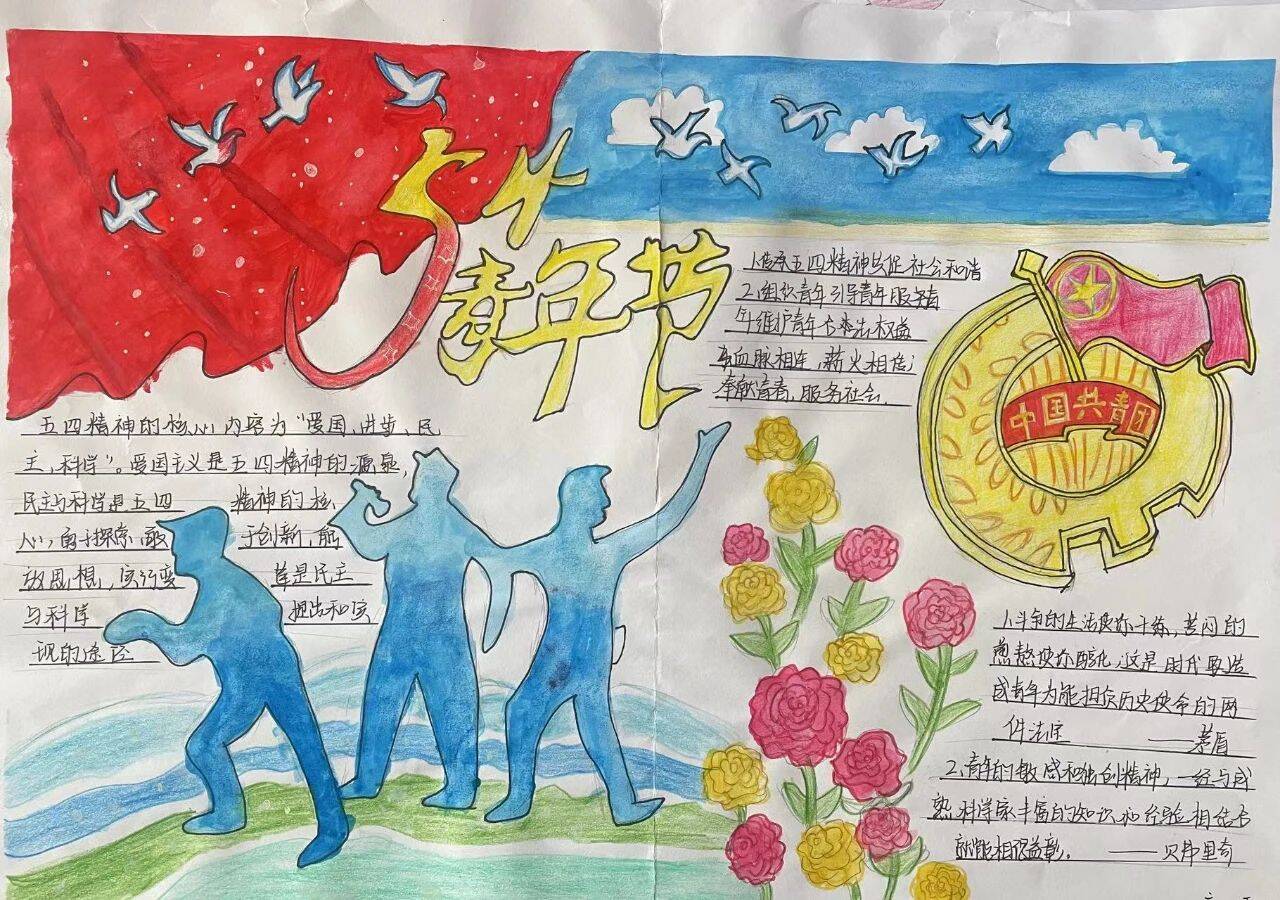 5.4
青年节
五四精神的核心内容为“爱国、进步、民
主、科学”。爱国主义是五四精神的源泉,
民主与科学是五四 精神的核
心,勇于探索、敢 于创新、解
放思想、实行变 革是民主
与科学 提出和实
现的途径
1.传承五四精神共促社会和谐
2.组织青年引导青年服务青
年维护青年合法权益
血脉相连,薪火相传;
奉献青春,服务社会.
中国共青团
1.斗争的生活使你干练,苦闷的
熬使你醇化,这是时代要造
成青年为能担负历史使命的两
件法宝 ——茅盾
2.青年的敏感和独创精神,一经与成
熟科学家丰富的知识和经验相结合
就能相得益彰。 ——贝弗里奇